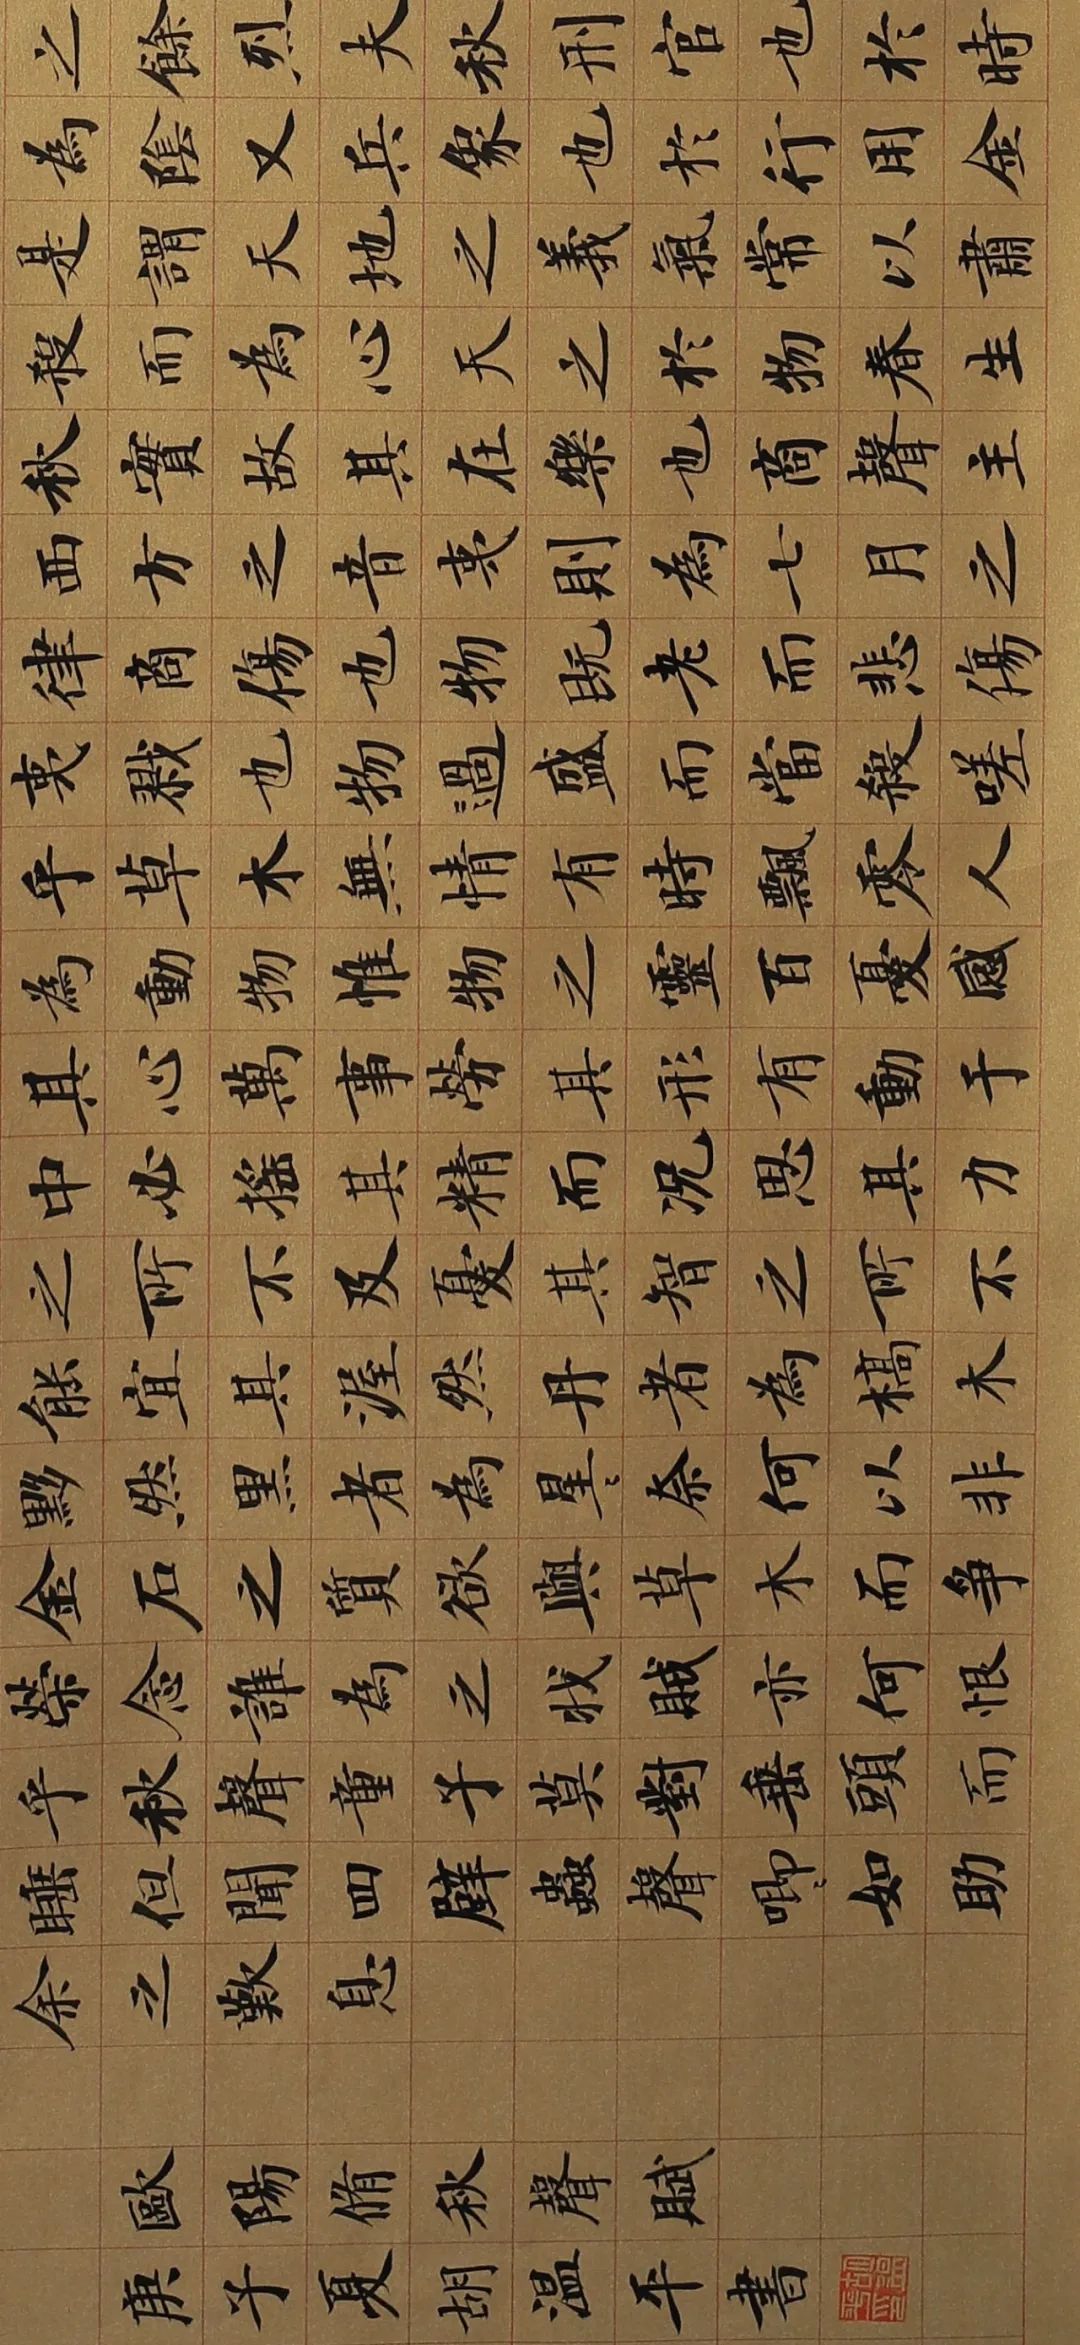 之餘烈夫秋刑官也於時
為陰又兵象也於行用金
是謂天地之義氣常以肅
殺而為心天之於物春生
秋實故其在樂也商聲主
西方之音夷則為七月之
律商傷也物既老而悲傷
夷戮也物過盛而當殺嗟
乎草木無情有時飄零人
為動物惟物之靈百憂感
其心萬事勞其形有動于
中必搖其精而況思其力
之所不及憂其智之所不
能宜其渥然丹者為槁木
黟然黑者為星〻奈何以非
金石之質欲與草木而爭
榮念誰為之戕賊亦何恨
乎秋聲童子莫對垂頭而
睡但聞四壁蟲聲唧〻如助
余之歎息
歐陽脩秋聲賦
庚子夏胡温平書
胡温平印